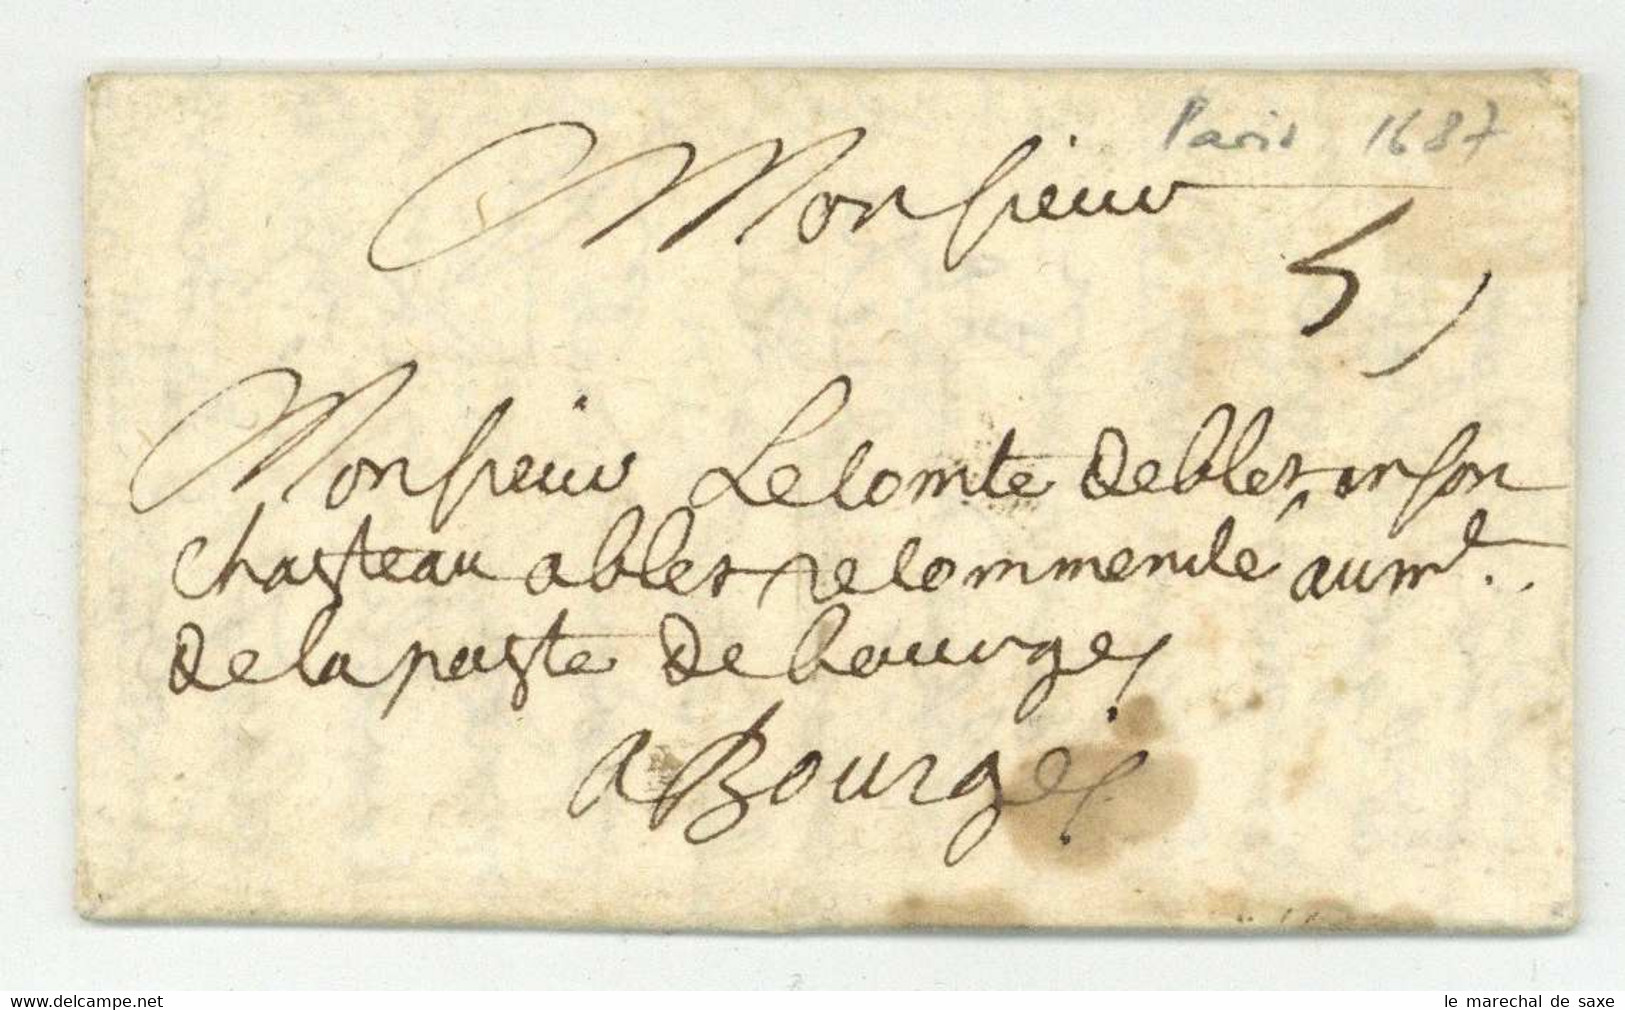 Paris 1687
Monsieur
5
Monsieur Le Comte de blet en son
chasteau a blet recommendé au me.
de la poste de bourges
a Bourges
www.delcampe.net
le marechal de saxe